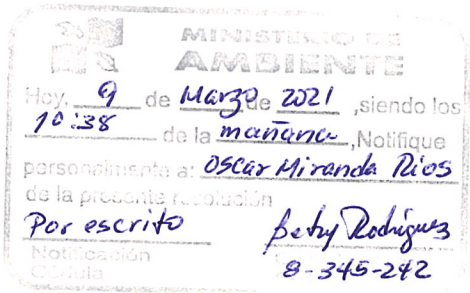 MINISTERIO DE
AMBIENTE
Hoy, 9 de Marzo de 2021, siendo los
10:38 de la mañana, Notifique
personalmente a: Oscar Miranda Rios
de la presente resolución
Por escrito Betzy Rodríguez
Notificación
Cédula 8-345-242